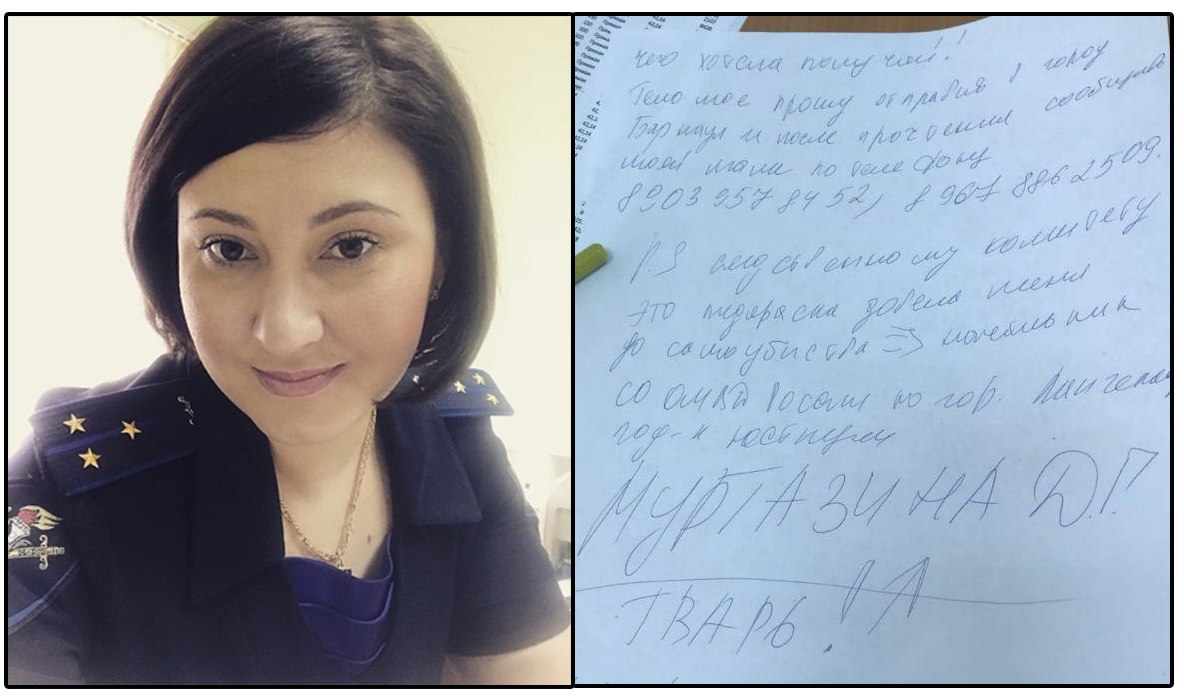 чего хотела получай!
Тело мое прошу отправить в город
Барнаул и после прочтения сообщить
моей маме по телефону
8903 957 84 52, 8 967 886 2509.
P.S следственному комитету
это довела меня
до самоубиства => начальник
СО ОМВД России по гор.
юстиции
МУРТАЗИНА Д.Г.
ТВАРЬ!